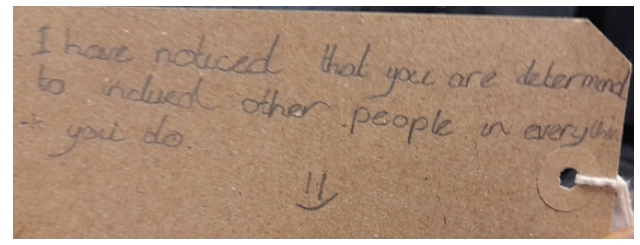 I have noticed that you are determind
to inclued other people in everythin
you do.